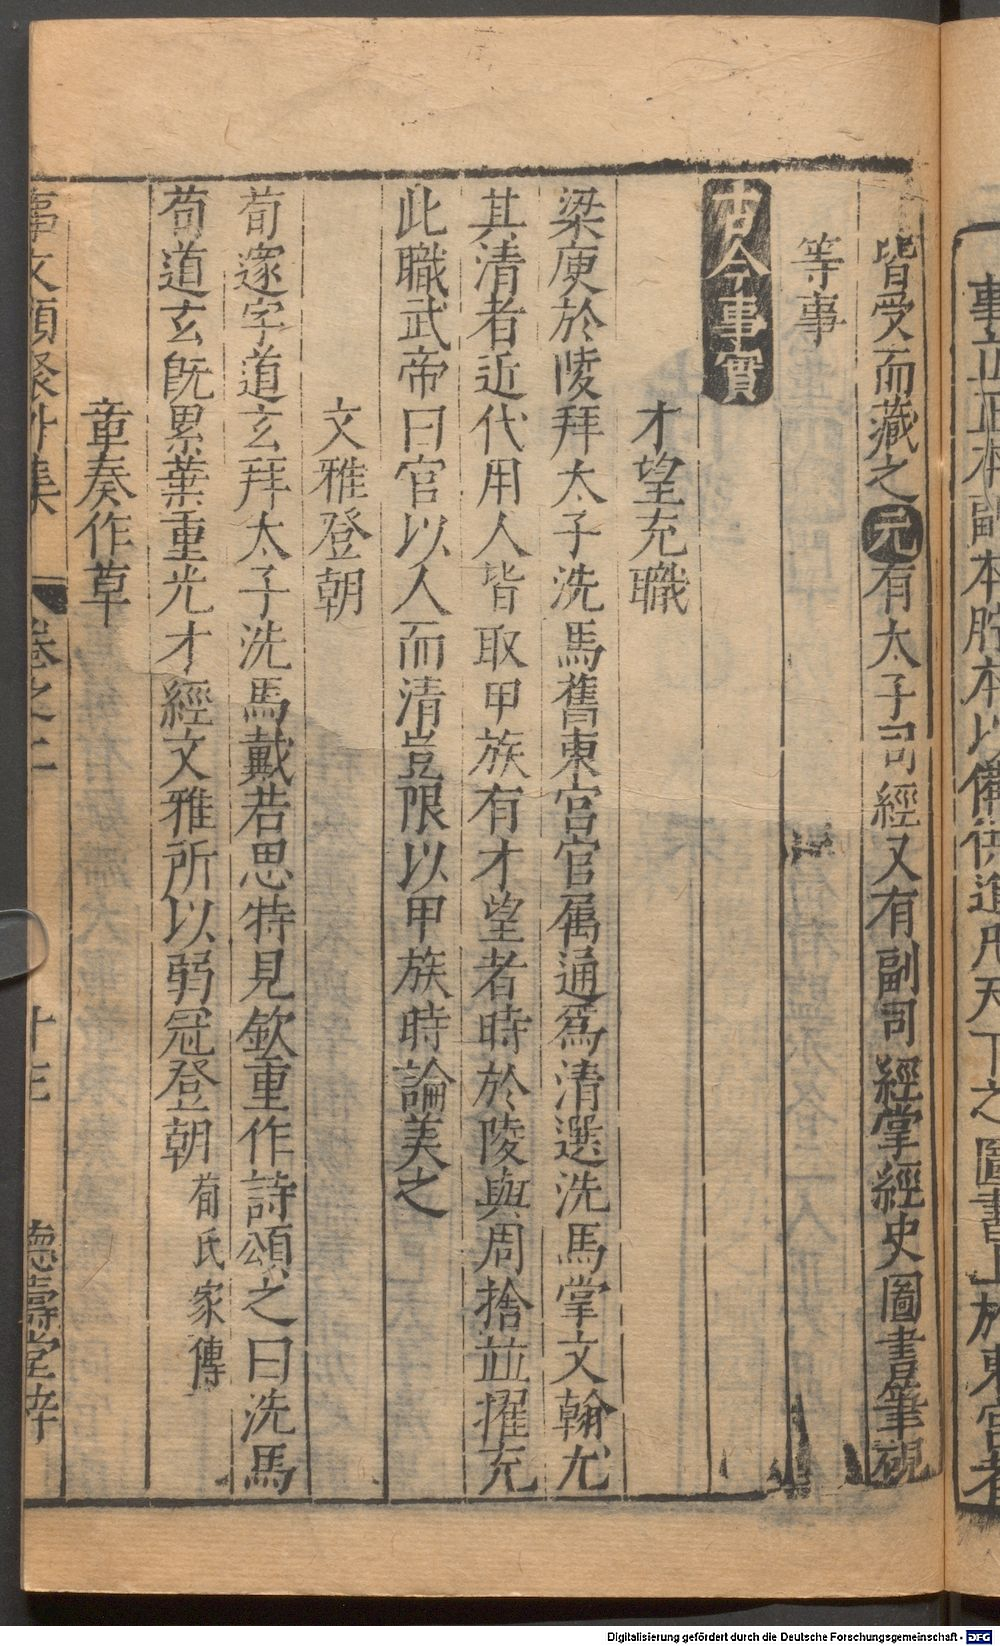 事止正本副本貯本以備供進凡天下之圖書上於東宮者
皆受而藏之元有太子司經又有副司經掌經史圖書筆硯
等事
古今事實
才望充職
梁庾於陵拜太子洗馬舊東宮官属通爲清選洗馬掌文翰尤
其清者近代用人皆取甲族有才望者時於陵與周捨並擢充
此職武帝曰官以人而清豈限以甲族時論美之
文雅登朝
荀邃字道玄拜太子洗馬戴若思特見欽重作詩頌之曰洗馬
荀道玄旣累葉重光才經文雅所以弱冠登朝荀氏家傳
章奏作草
事文類聚外集 卷之二 十三 德壽堂梓
Digitalisierung gefördert durch die Deutsche Forschungsgemeinschaft - DFG